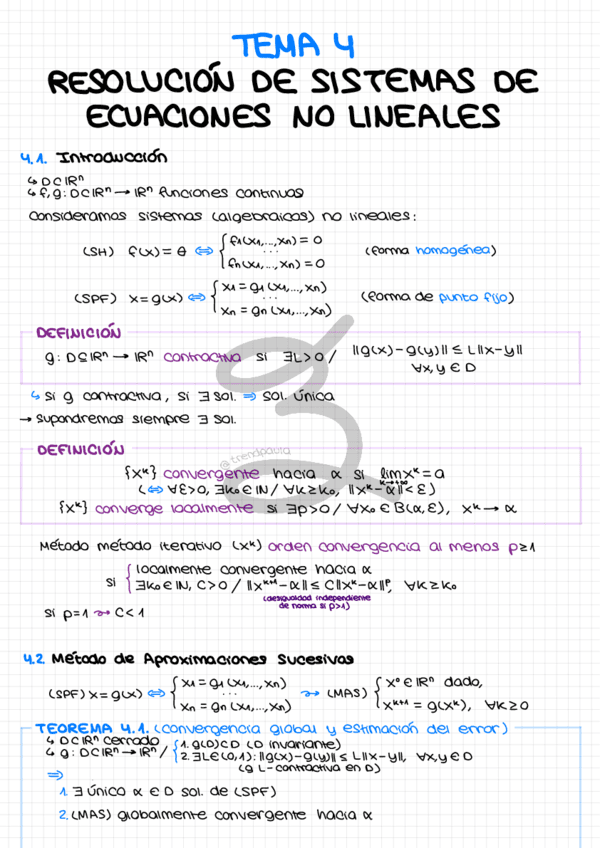 TEMA 4
RESOLUCIÓN DE SISTEMAS DE
ECUACIONES NO LINEALES
4.1. Introducción
↳ D⊂ℝⁿ
↳ f,g: D⊂ℝⁿ → ℝⁿ funciones continuas
Consideramos sistemas (algebraicos) no lineales:
(SH) f(x) = θ ⇔ { f₁(x₁,...,xₙ) = 0 (forma homogénea)
...
fₙ(x₁,...,xₙ) = 0
(SPF) x = g(x) ⇔ { x₁ = g₁(x₁,...,xₙ) (forma de punto fijo)
...
xₙ = gₙ(x₁,...,xₙ)
DEFINICIÓN
g: D⊆ℝⁿ → ℝⁿ contractiva si ∃L>0 / ||g(x)-g(y)|| ≤ L||x-y||
∀x,y ∈ D
↳ si g contractiva, si ∃ sol. ⇒ sol. única
→ supondremos siempre ∃ sol.
@trendpaula
DEFINICIÓN
{xᵏ} convergente hacia α si lim xᵏ = a
k→+∞
(⇔ ∀ε>0, ∃k₀∈ℕ / ∀k≥k₀, ||xᵏ-α||<ε)
{xᵏ} converge localmente si ∃ρ>0 / ∀x₀∈B(α,ε), xᵏ → α
Método método iterativo (xᵏ) orden convergencia al menos p≥1
si { localmente convergente hacia α
∃k₀∈ℕ, C>0 / ||xᵏ⁺¹-α|| ≤ C||xᵏ-α||ᵖ, ∀k≥k₀
(desigualdad independiente
de norma si p>1)
si p=1 ⤳ C<1
4.2 Método de Aproximaciones Sucesivas
(SPF) x = g(x) ⇔ { x₁ = g₁(x₁,...,xₙ) ⤳ (MAS) { x⁰∈ℝⁿ dado,
...
xₙ = gₙ(x₁,...,xₙ) xᵏ⁺¹ = g(xᵏ), ∀k≥0
TEOREMA 4.1. (convergencia global y estimación del error)
↳ D⊂ℝⁿ cerrado
↳ g: D⊂ℝⁿ → ℝⁿ / { 1. g(D)⊂D (D invariante)
2. ∃L∈(0,1): ||g(x)-g(y)|| ≤ L||x-y||, ∀x,y∈D
(g L-contractiva en D)
⇒
1. ∃ único α ∈ D sol. de (SPF)
2. (MAS) globalmente convergente hacia α